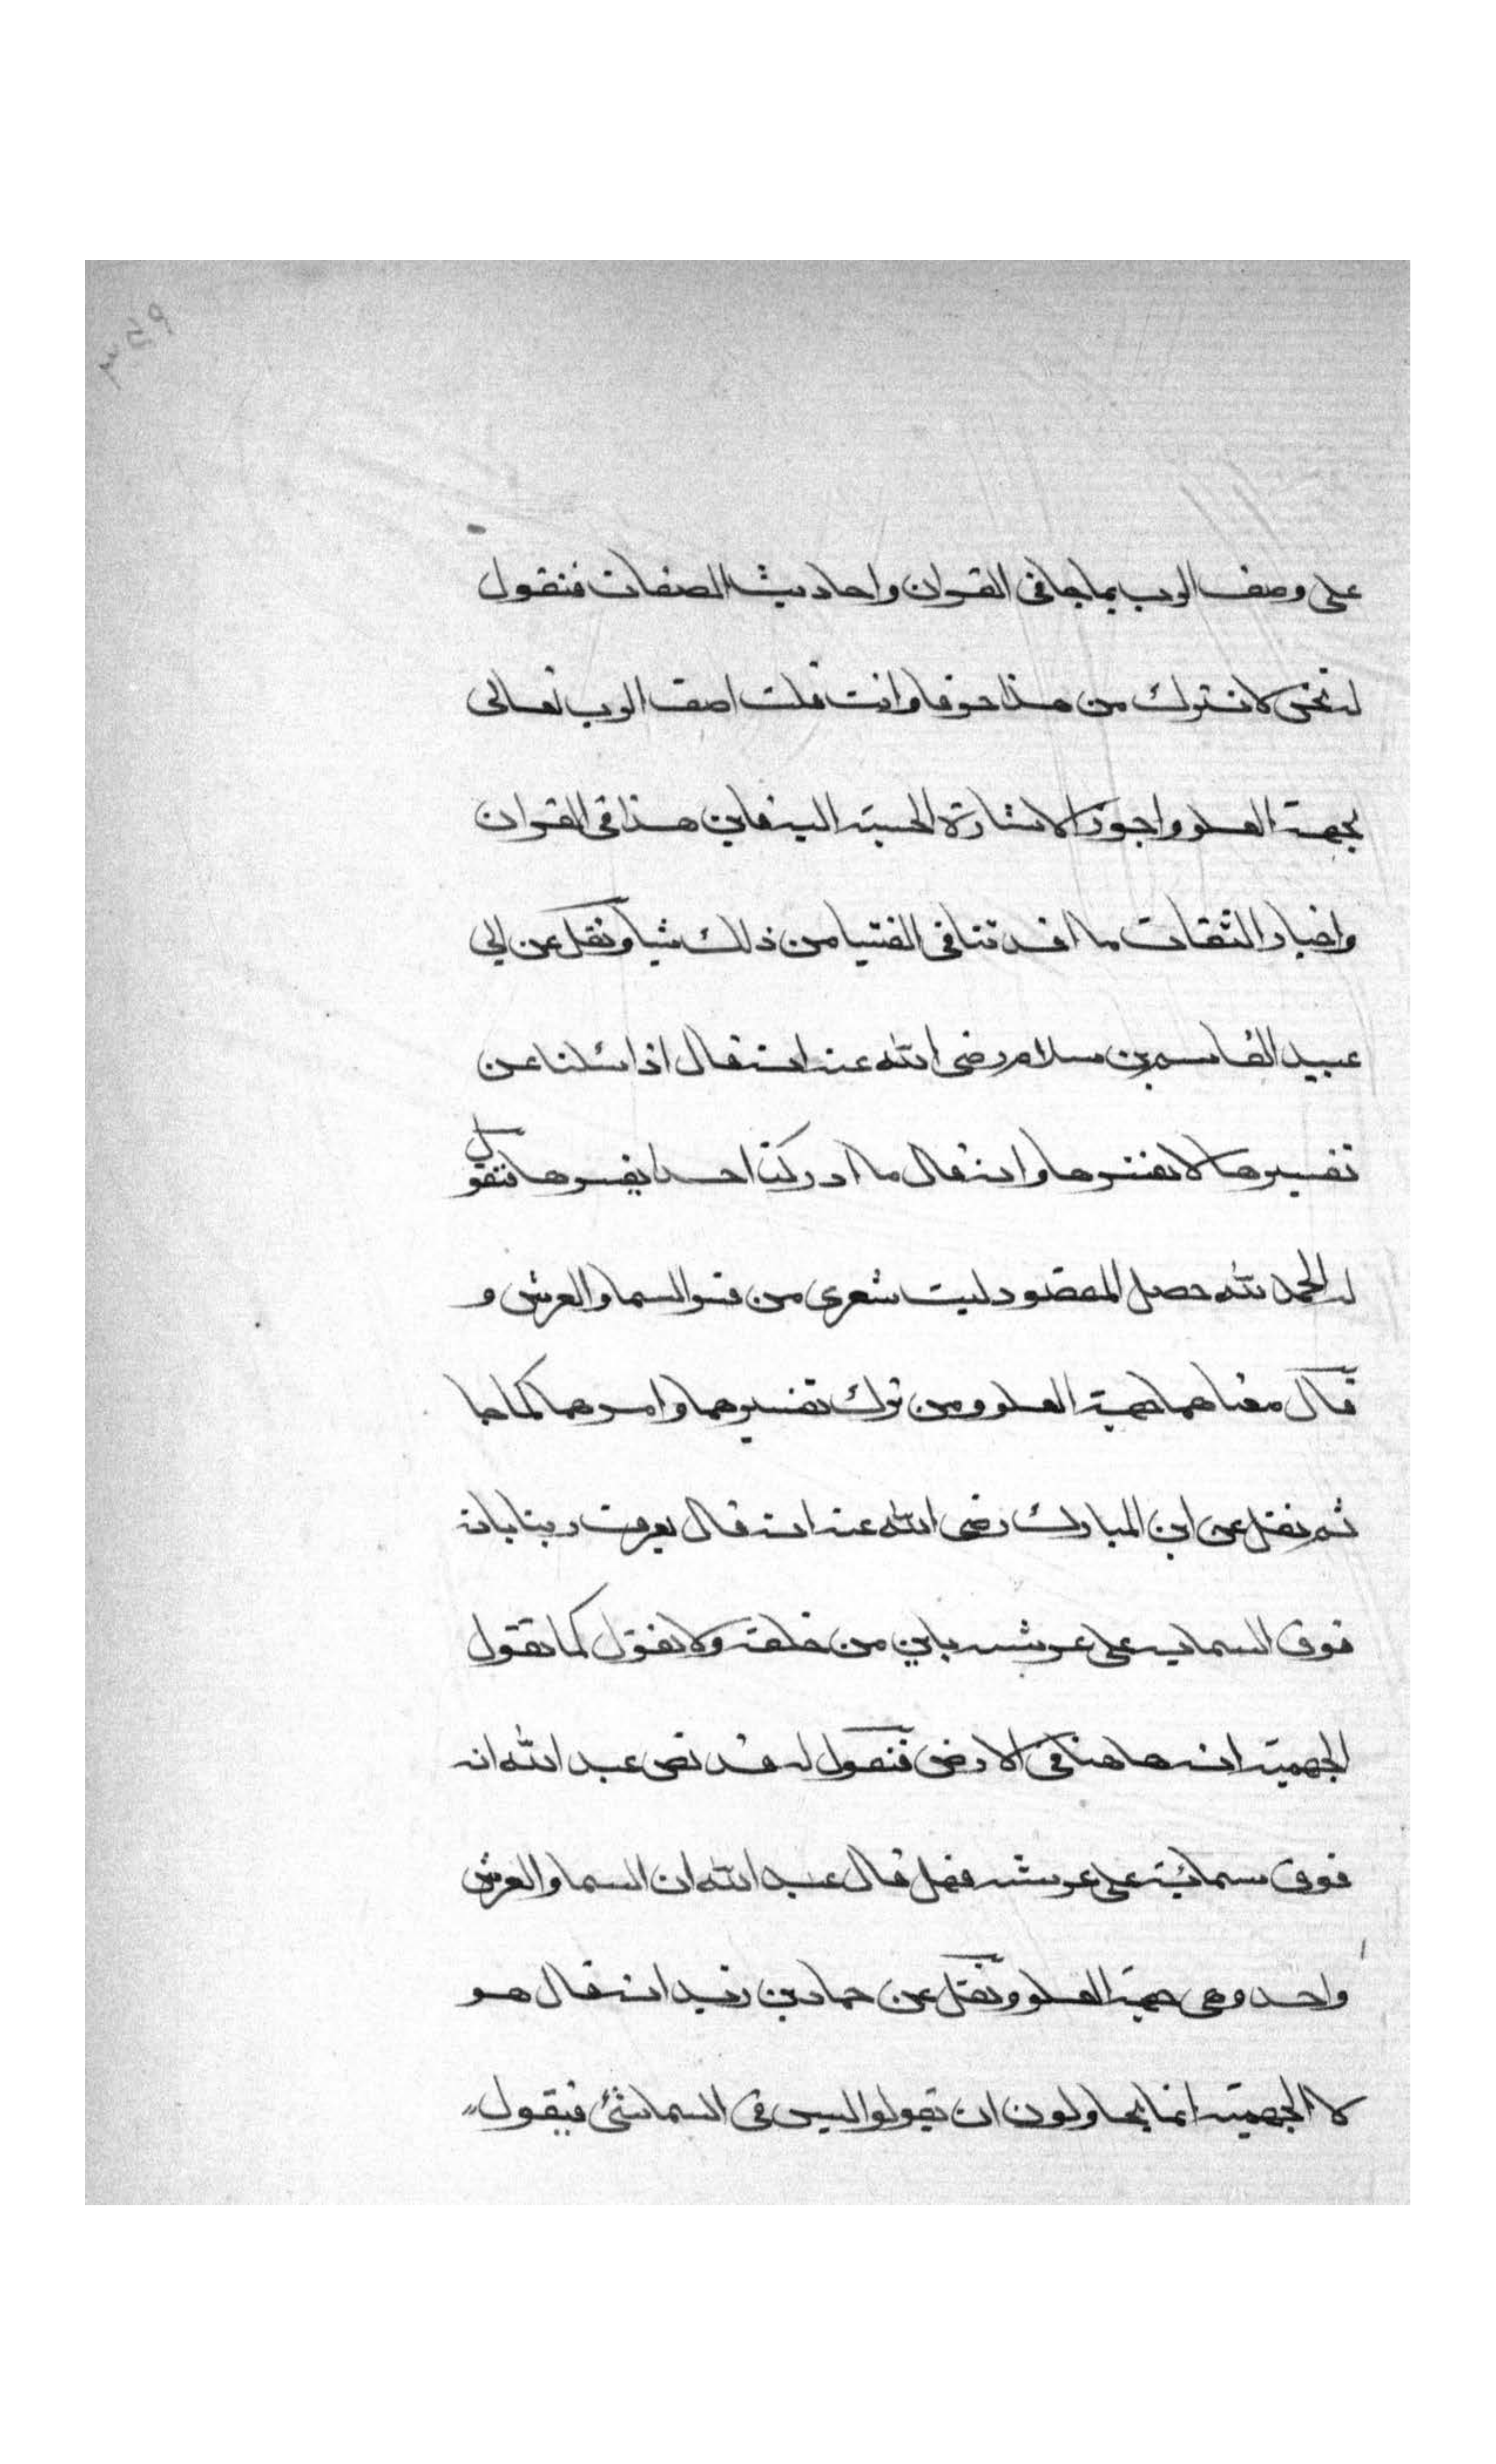 على وصف الرب بما جا فى القران واحاديث الصفات فنقول
له نحن لا نترك من هذا حرفا وانت قلت اصف الرب تعالى
بجهة العلو واجوز الاشارة الحسية اليه فاين هذا فى القران
واخبار الثقات ما افدتنا فى الفتيا من ذلك شيا ونقل عن ابي
عبيد القاسم بن سلام رضى الله عنه انه قال اذا سئلنا عن
تفسيرها لا نفسرها وانه قال ما ادركنا احدا يفسرها فنقول
له الحمد لله حصل المقصود ليت شعرى من فسر السما والعرش و
قال معناهما جهة العلو ومن ترك تفسيرهما وامرهما كما جا
ثم نقل عن ابن المبارك رضى الله عنه انه قال يعرف ربنا بانه
فوق السمايه على عرشه باين من خلقه ولا نقول كما تقول
الجهمية انه هاهنا فى الارض فنقول له قد نص عبد الله انه
فوق سمائيه على عرشه فهل قال عبد الله ان السما والعرش
واحد وهى جهة العلو ونقل عن حماد بن زيد انه قال هو
لا الجهمية انما يحاولون ان يقولوا ليس فى السما شئ فيقول